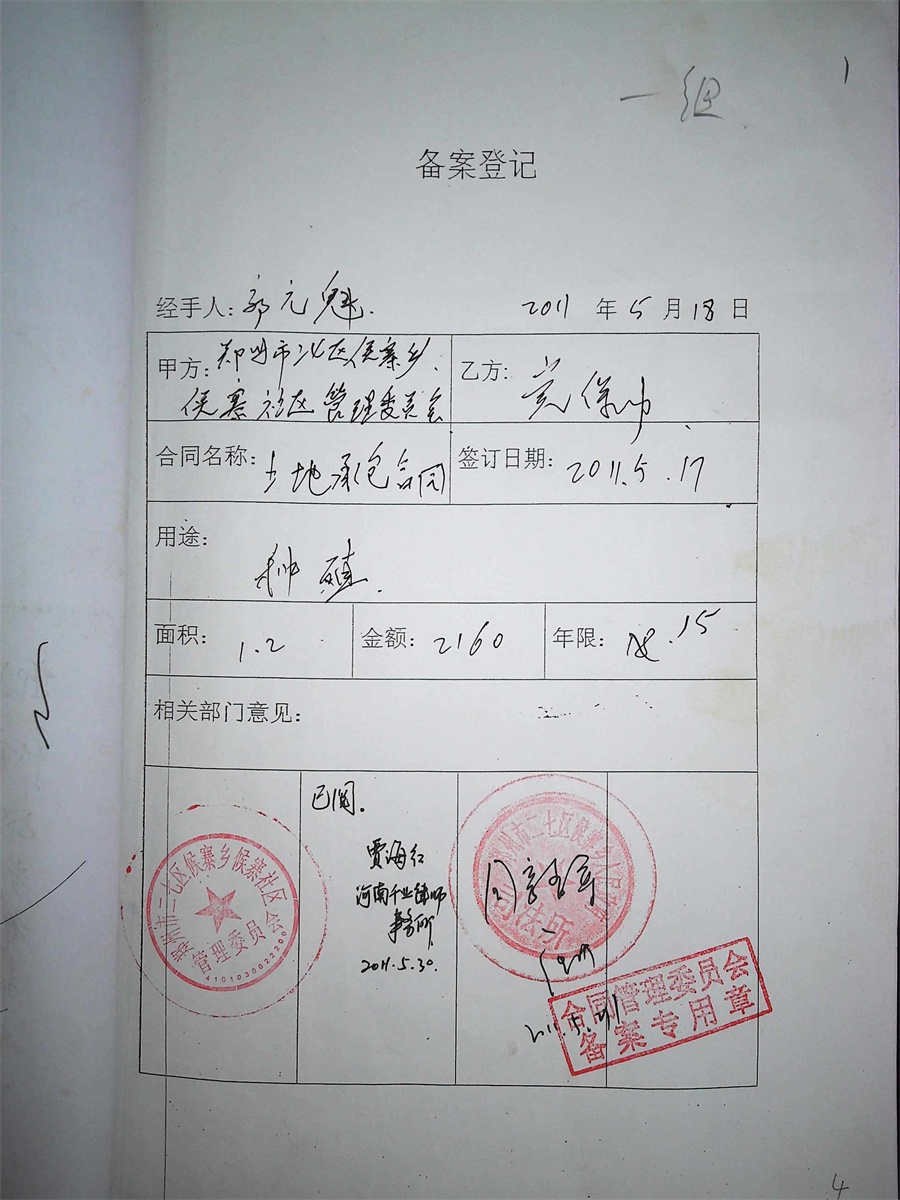 一组
1
备案登记
经手人：郭元魁. 2011 年 5 月 18 日
甲方：郑州市二七区侯寨乡
侯寨社区管理委员会
乙方：
合同名称：土地承包合同
签订日期：2011.5.17
用途：
种植.
面积：1.2
金额：2160
年限：15
相关部门意见：
郑州市二七区候寨乡候寨社区
管理委员会
4101030022200
已阅.
贾海红
河南千业律师
事务所
2011.5.30.
州市二七区侯寨乡
司法所
合同管理委员会
备案专用章
4